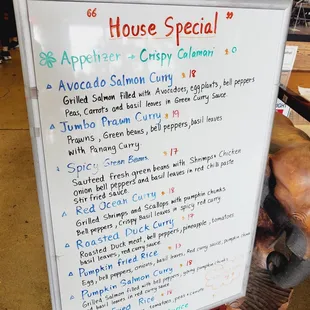 “ House Special ”
Appetizer → Crispy Calamari $
Avocado Salmon Curry $ 18
Grilled Salmon filled with Avocados, eggplants, bell peppers
Peas, Carrots and basil leaves in Green Curry Sauce
Jumbo Prawn Curry $ 19
Prawns, Green beans, bell peppers, basil leaves
With Panang Curry.
Spicy Green Beans $ 17
Sauteed fresh green beans with Shrimps + Chicken
onion bell peppers and basil leaves in red chili paste
Stir fried sauce.
Red Ocean Curry $ 18
Grilled Shrimps and Scallops with pumpkin chunks
Bell peppers, Crispy Basil leaves in spicy red curry.
Roasted Duck Curry $ 17
Roasted Duck meat, bell peppers, pineapple, tomatoes
basil leaves, red curry sauce.
Pumpkin fried Rice
Egg, bell peppers, onions, basil leaves, Red curry sauce, pumpkin chunks
Pumpkin Salmon Curry $ 18
Grilled Salmon filled with bell peppers, pumpkin chunks
and basil leaves in red curry sauce
Rice $ 16
tomatoes, peas + carrots